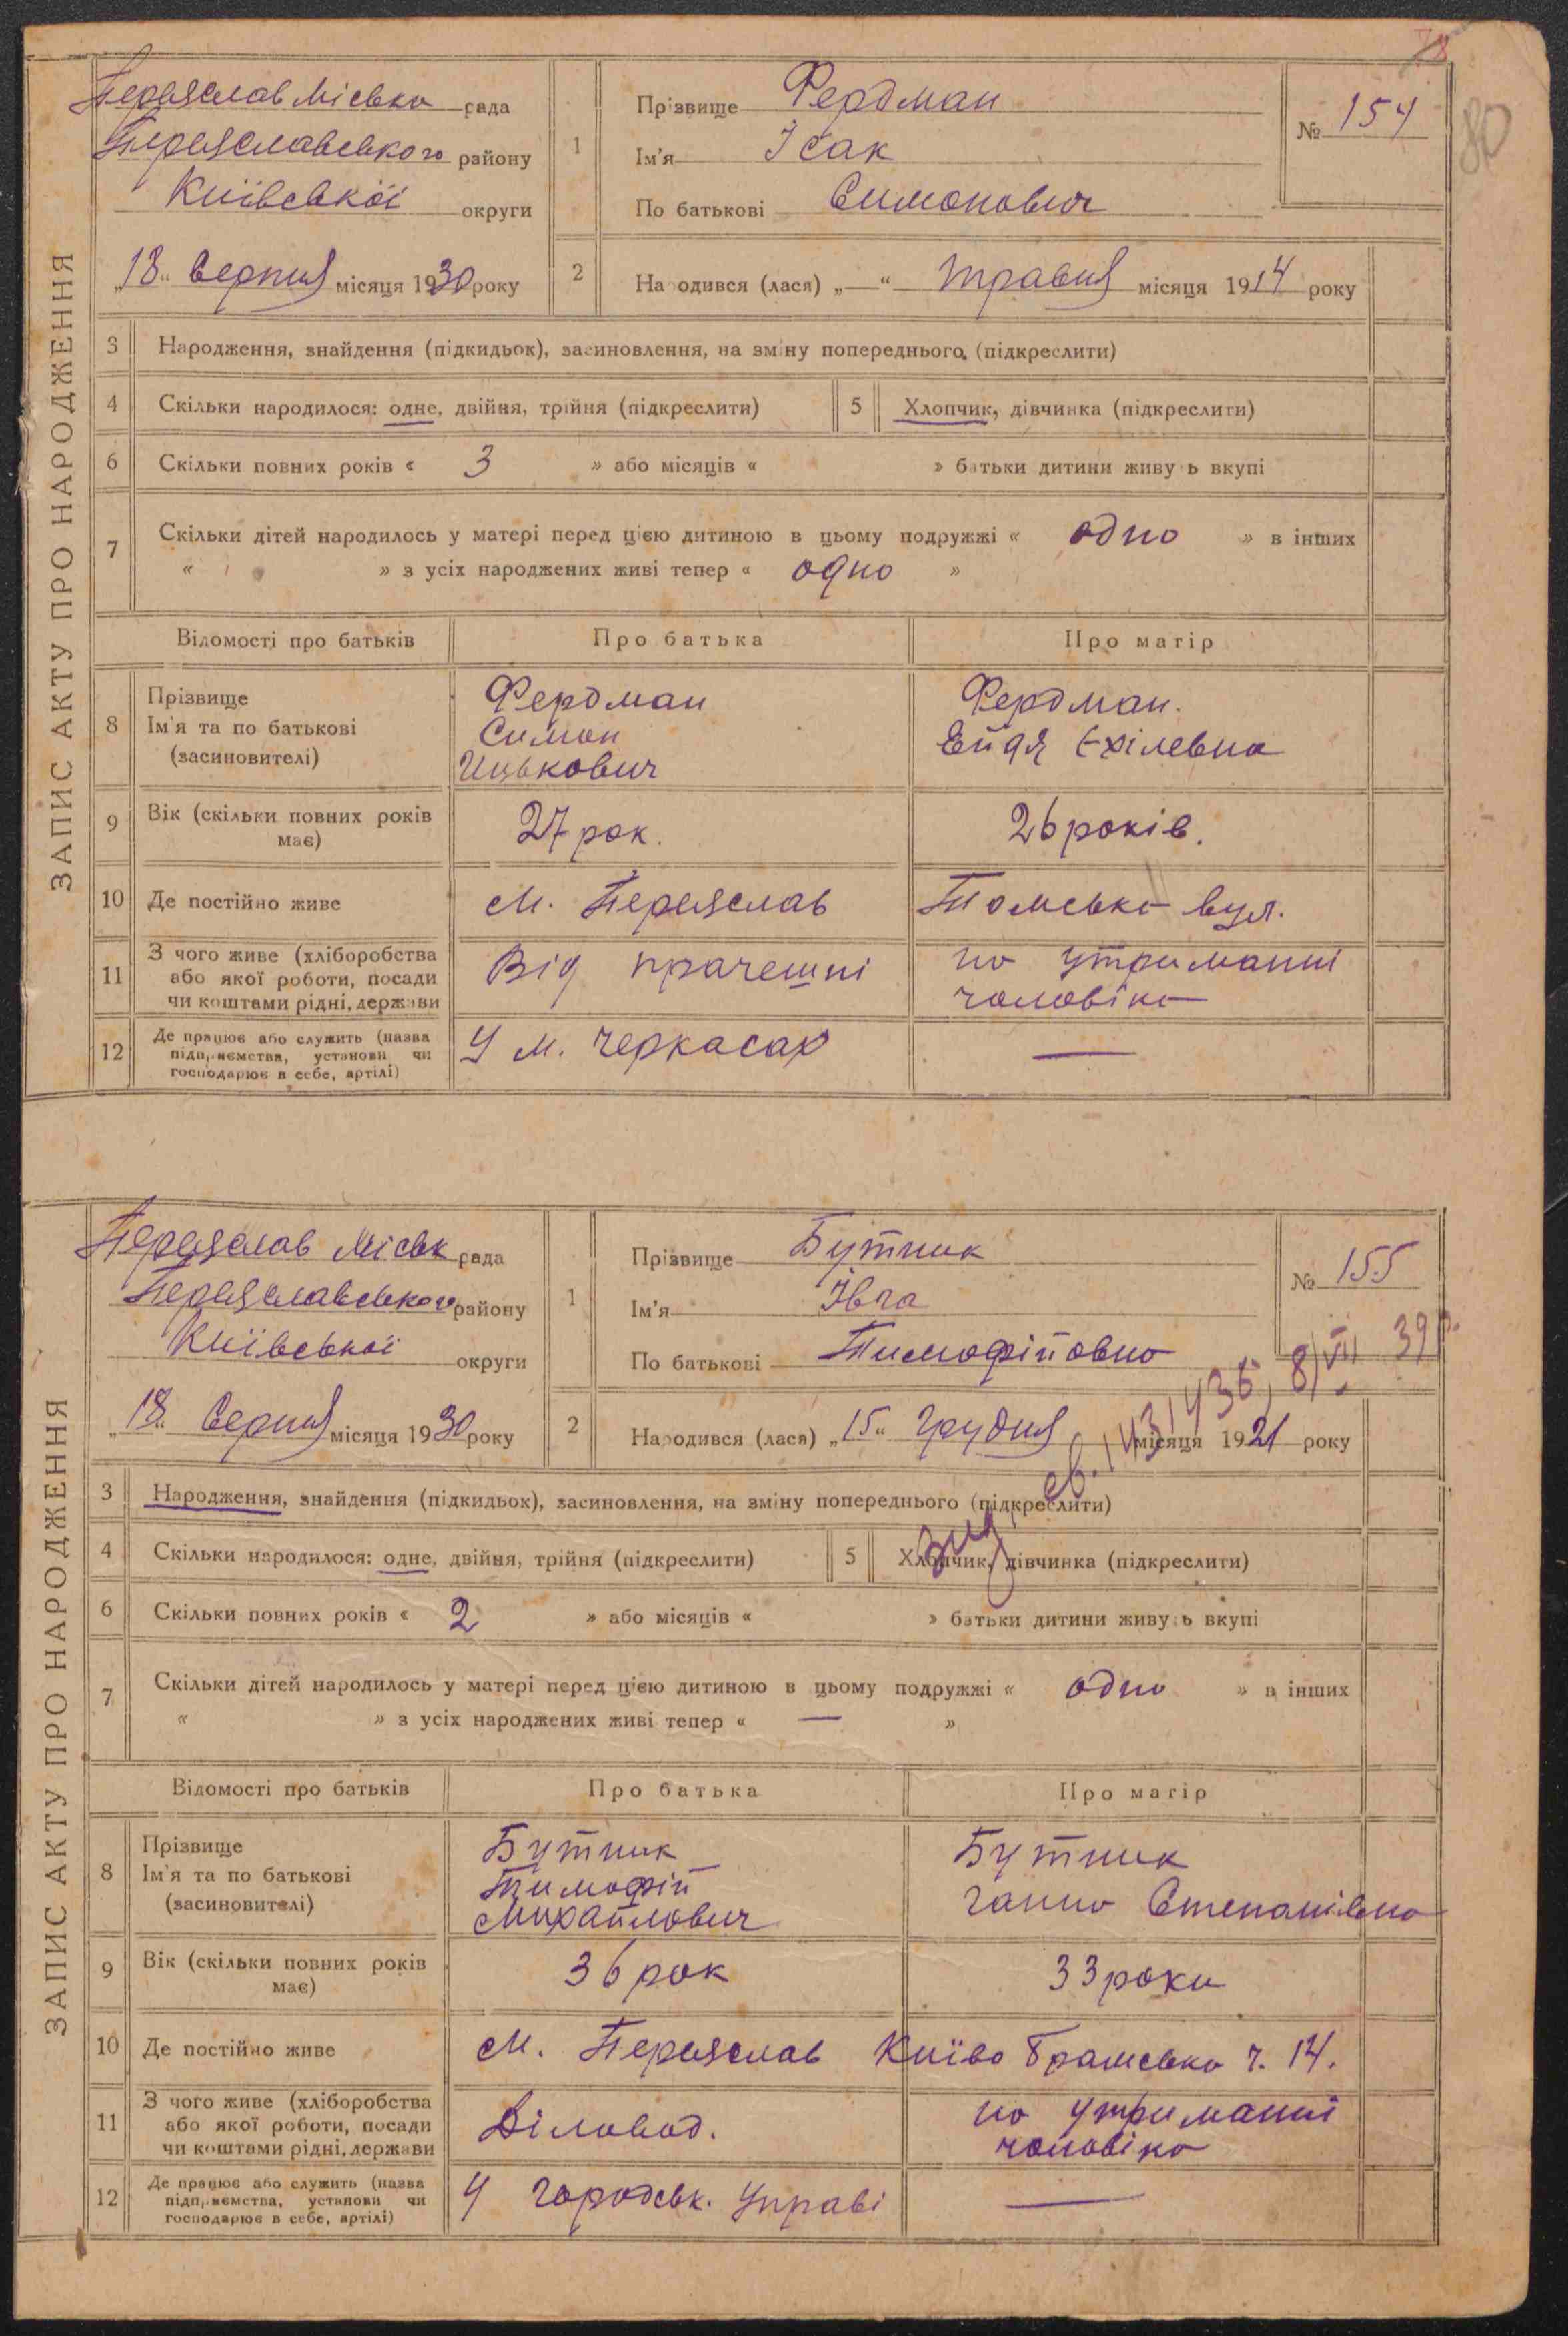 78
80
ЗАПИС АКТУ ПРО НАРОДЖЕННЯ
Переяслав Міська рада
Переяславського району
Київської округи
„18“ Серпня місяця 1930 року
1 Прізвище Фердман
Ім'я Ісак
По батькові Симонович
№ 154
2 Народився (лася) „—“ травня місяця 1914 року
3 Народження, знайдення (підкидьок), засиновлення, на зміну попереднього, (підкреслити)
4 Скільки народилося: одне, двійня, трійня (підкреслити) 5 Хлопчик, дівчинка (підкреслити)
6 Скільки повних років « 3 » або місяців « » батьки дитини живуть вкупі
7 Скільки дітей народилось у матері перед цією дитиною в цьому подружжі « одно » в інших
« » з усіх народжених живі тепер « одно »
Відомості про батьків Про батька Про матір
8 Прізвище
Ім'я та по батькові
(засиновителі)
Фердман
Симон
Ицькович
Фердман.
Ейдя Ехілевна
9 Вік (скільки повних років має) 27 рок. 26 років.
10 Де постійно живе м. Переяслав Томська вул.
11 З чого живе (хліборобства
або якої роботи, посади
чи коштами рідні, держави
Від прачешні
на утриманні
чоловіка
12 Де працює або служить (назва
підприємства, установи чи
господарює в себе, артілі)
У м. Черкасах —
ЗАПИС АКТУ ПРО НАРОДЖЕННЯ
Переяслав Міськ рада
Переяславського району
Київської округи
„18“ Серпня місяця 1930 року
1 Прізвище Бутник
Ім'я Івга
По батькові Тимофіївна
№ 155
8/VII 39 р.
2 Народився (лася) „15“ Грудня місяця 1921 року
3 Народження, знайдення (підкидьок), засиновлення, на зміну попереднього (підкреслити)
4 Скільки народилося: одне, двійня, трійня (підкреслити) 5 Хлопчик, дівчинка (підкреслити)
6 Скільки повних років « 2 » або місяців « » батьки дитини живуть вкупі
7 Скільки дітей народилось у матері перед цією дитиною в цьому подружжі « одно » в інших
« » з усіх народжених живі тепер « — »
Відомості про батьків Про батька Про матір
8 Прізвище
Ім'я та по батькові
(засиновителі)
Бутник
Тимофій
Михайлович
Бутник
Ганна Степанівна
9 Вік (скільки повних років має) 36 рок 33 роки
10 Де постійно живе м. Переяслав Київо Брамська ч. 14.
11 З чого живе (хліборобства
або якої роботи, посади
чи коштами рідні, держави
Діловод.
на утриманні
чоловіка
12 Де працює або служить (назва
підприємства, установи чи
господарює в себе, артілі)
У городськ. Управі —